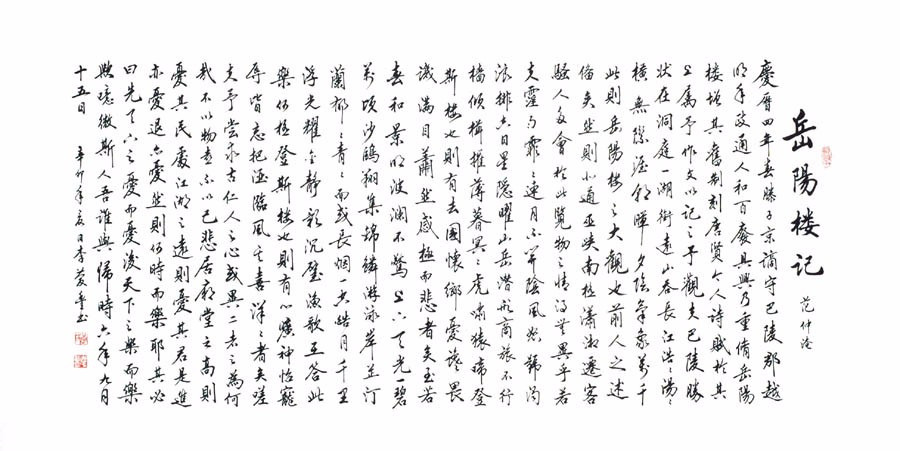 岳陽楼记
范仲淹
慶曆四年春滕子京謫守巴陵郡越
明年政通人和百廢具興乃重脩岳陽
楼增其舊制刻唐贤今人詩賦於其
上属予作文以记之予觀夫巴陵勝
状在洞庭一湖銜遠山吞長江浩〻湯〻
横無際涯朝暉夕陰氣象萬千
此則岳陽楼之大觀也前人之述
備矣然則北通巫峡南極瀟湘遷客
騷人多會於此覽物之情得無異乎若
夫霪雨霏〻連月不開陰風怒號濁
浪排空日星隐曜山岳潜形商旅不行
檣傾楫摧薄暮冥〻虎嘯猿啼登
斯楼也則有去國懷鄉憂讒畏
譏滿目蕭然感極而悲者矣至若
春和景明波瀾不驚上下天光一碧
萬頃沙鷗翔集錦鱗游泳岸芷汀
蘭郁〻青〻而或長烟一空皓月千里
浮光耀金静影沉璧漁歌互答此
樂何極登斯楼也則有心曠神怡寵
辱皆忘把酒臨風其喜洋〻者矣嗟
夫予嘗求古仁人之心或異二者之為何
哉不以物喜不以己悲居廟堂之高則
憂其民處江湖之遠則憂其君是進
亦憂退亦憂然則何時而樂耶其必
曰先天下之憂而憂後天下之樂而樂
歟噫微斯人吾誰與歸時六年九月
十五日 辛卯年夏日李